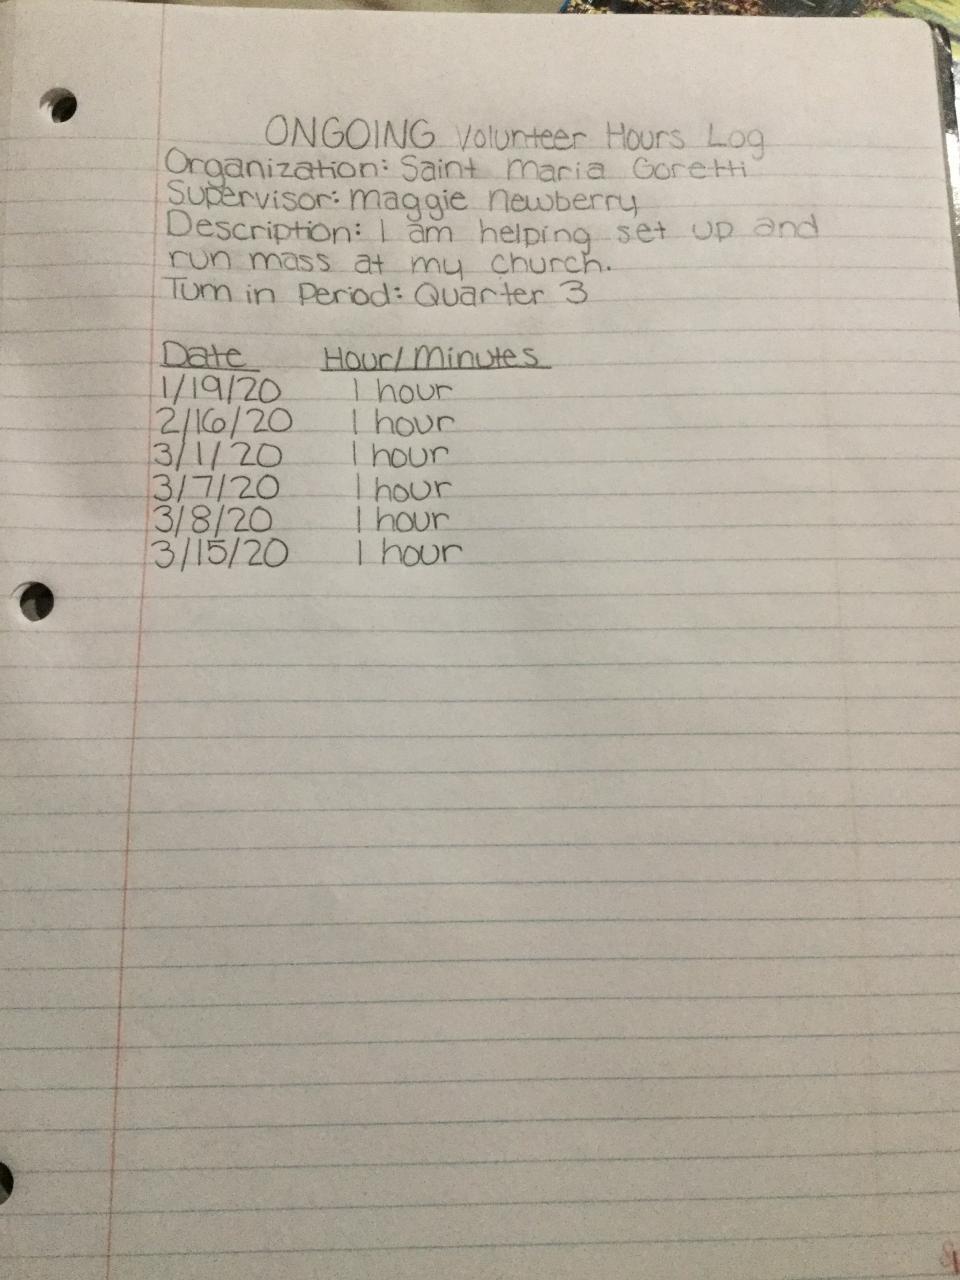 ONGOING Volunteer Hours Log
Organization: Saint Maria Goretti
Supervisor: Maggie Newberry
Description: I am helping set up and
run mass at my church.
Turn in Period: Quarter 3
Date Hour/Minutes
1/19/20 1 hour
2/16/20 1 hour
3/1/20 1 hour
3/7/20 1 hour
3/8/20 1 hour
3/15/20 1 hour